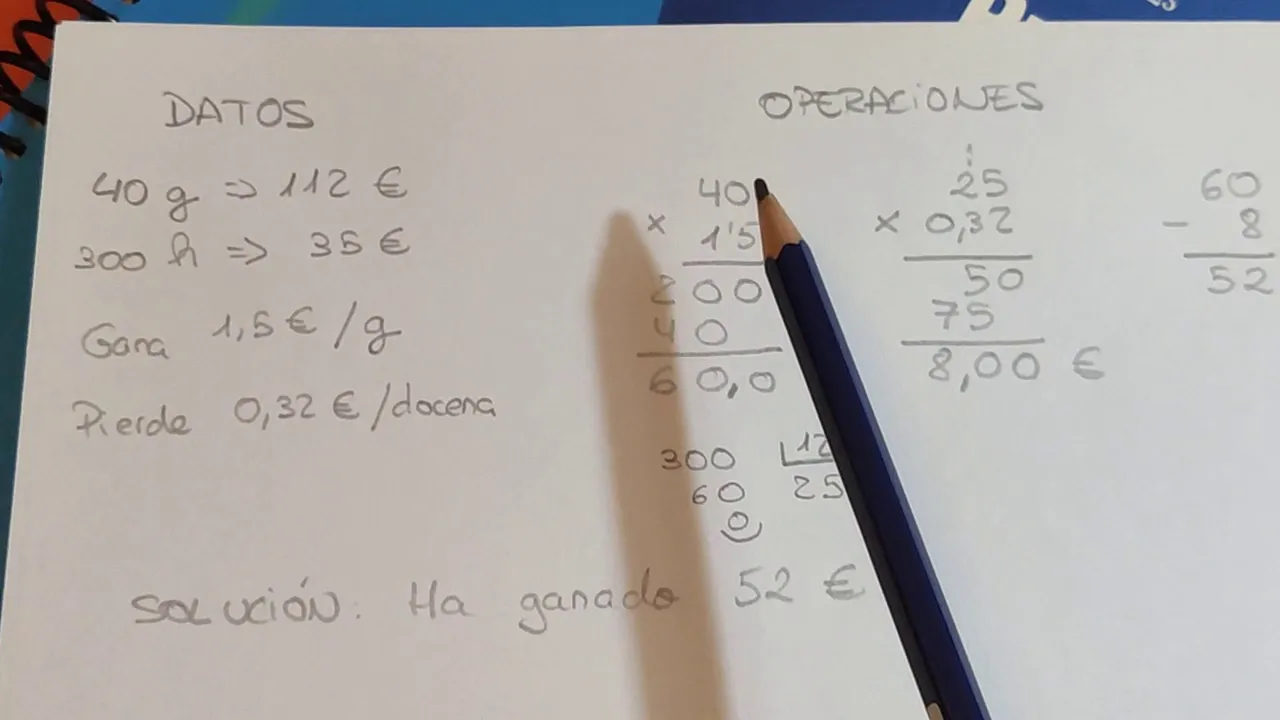 DATOS
40 g => 112 €
300 h => 35 €
Gana 1,5 € /g
Pierde 0,32 € /docena
OPERACIONES
40
x 1'5
200
40
60,0
300 12
60 25
0
25
x 0,32
50
75
8,00 €
60
- 8
52
SOLUCIÓN: Ha ganado 52 €